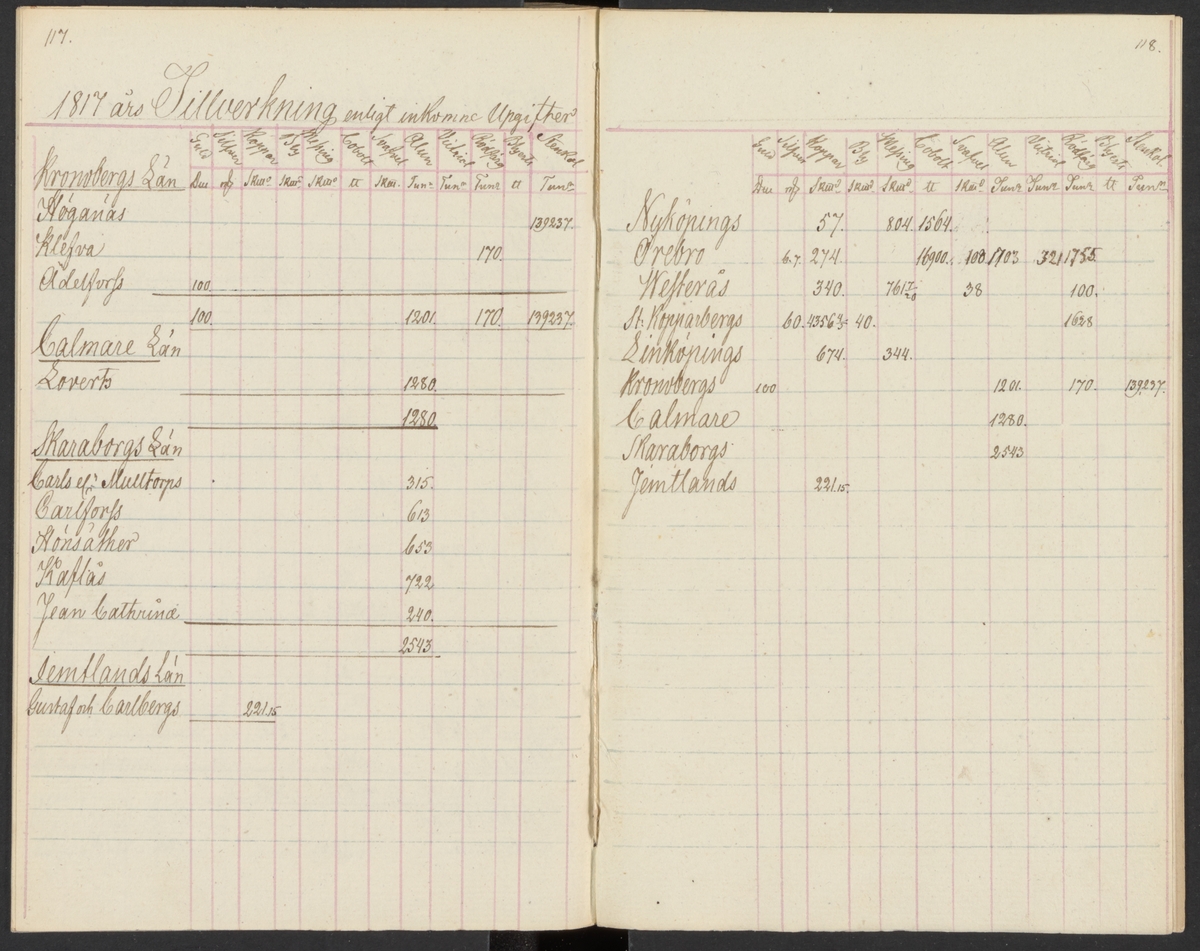 117.
1817 års Tillverkning enligt inkomne Upgifter
Guld Silfver Koppar Bly Messing Cobolt Svafvel Alun Victriol Rödfärg Blyerts Stenkol
Kronobergs Län Duc mk Skttd Skttd Skttd tt Skttd Tunr Tunr Tunr tt Tunr
Höganäs 139237.
Klefva 170.
Ädelforss 100.
100. 1201. 170. 139237.
Calmare Län
Loverts 1280.
1280.
Skaraborgs Län
Carls el. Mulltorps 315.
Carlforss 613
Hönsäther 653
Kaflås 722
Jean Cathrinæ 240.
2543
Jemtlands Län
Gustaf och Carlbergs 221.15
118.
Guld Silfver Koppar Bly Messing Cobolt Svafvel Alun Victriol Rödfärg Blyerts Stenkol
Duc mk Skttd Skttd Skttd tt Skttd Tunr Tunr Tunr tt Tunr
Nyköpings 57. 804. 1564.
Örebro 6.7. 274. 16900. 100 1703 321 1755.
Westerås 340. 761 38 100.
St. Kopparbergs 60. 40. 1628
Linköpings 674. 344.
Kronobergs 100 1201. 170. 139237.
Calmare 1280.
Skaraborgs 2543
Jemtlands 221.15.